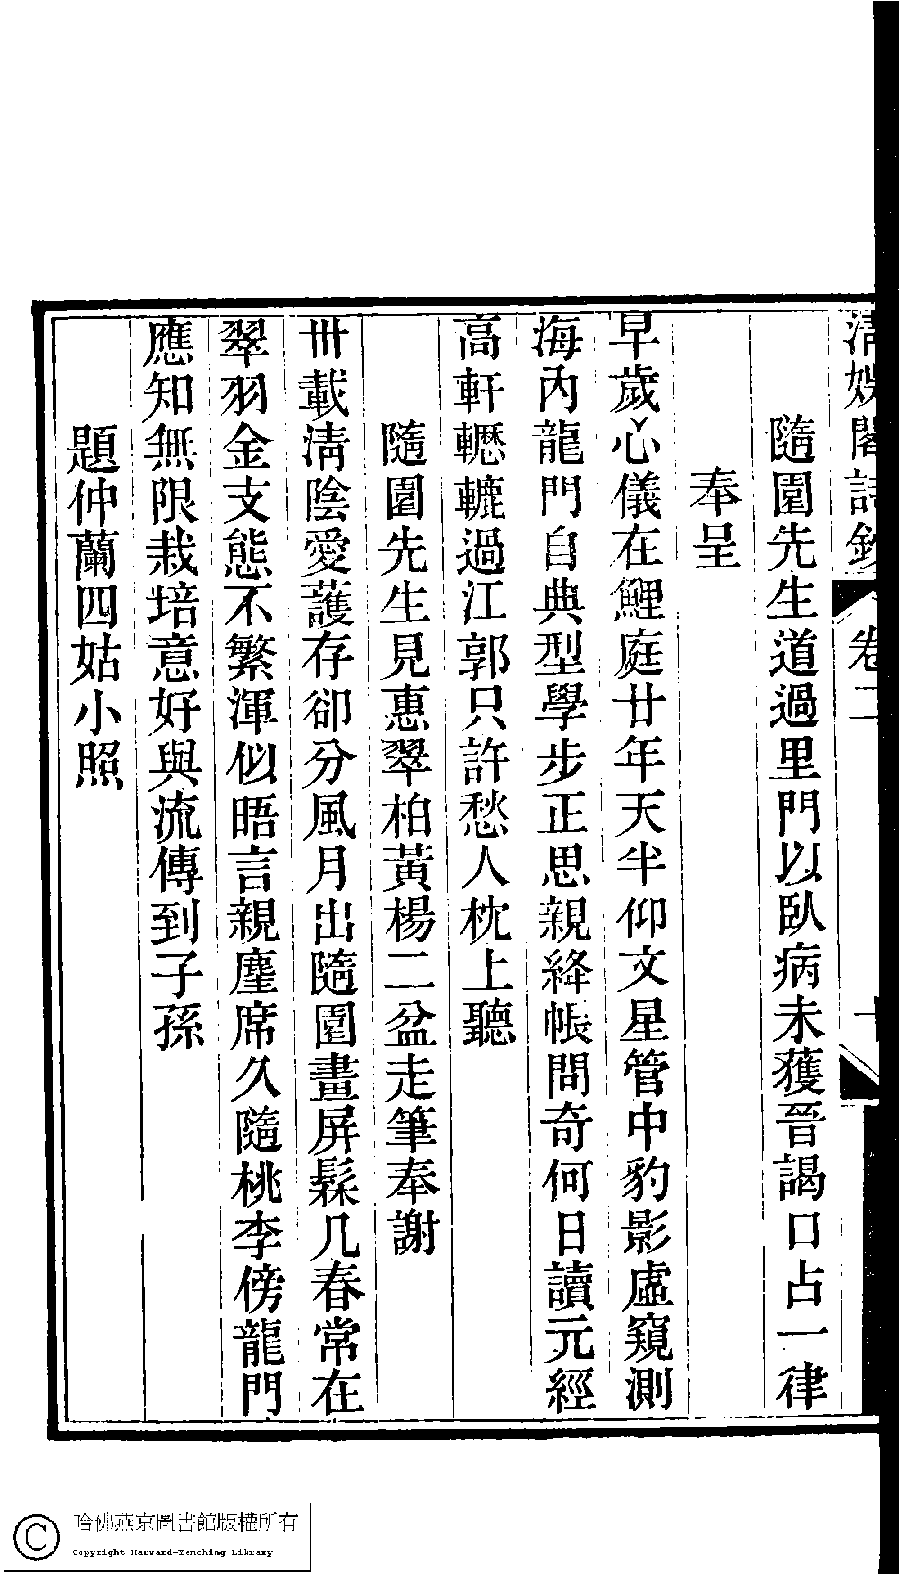 清娛閣詩鈔 卷二
隨園先生道過里門以臥病未獲晉謁口占一律
奉呈
早歲心儀在鯉庭廿年天半仰文星管中豹影虛窺測
海內龍門自典型學步正思親絳帳問奇何日讀元經
高軒轣轆過江郭只許愁人枕上聽
隨園先生見惠翠柏黃楊二盆走筆奉謝
卅載清陰愛護存卻分風月出隨園畫屏髹几春常在
翠羽金支態不繁渾似晤言親麈席久隨桃李傍龍門
應知無限栽培意好與流傳到子孫
題仲蘭四姑小照
哈佛燕京圖書館版權所有
Copyright Harvard-Yenching Library